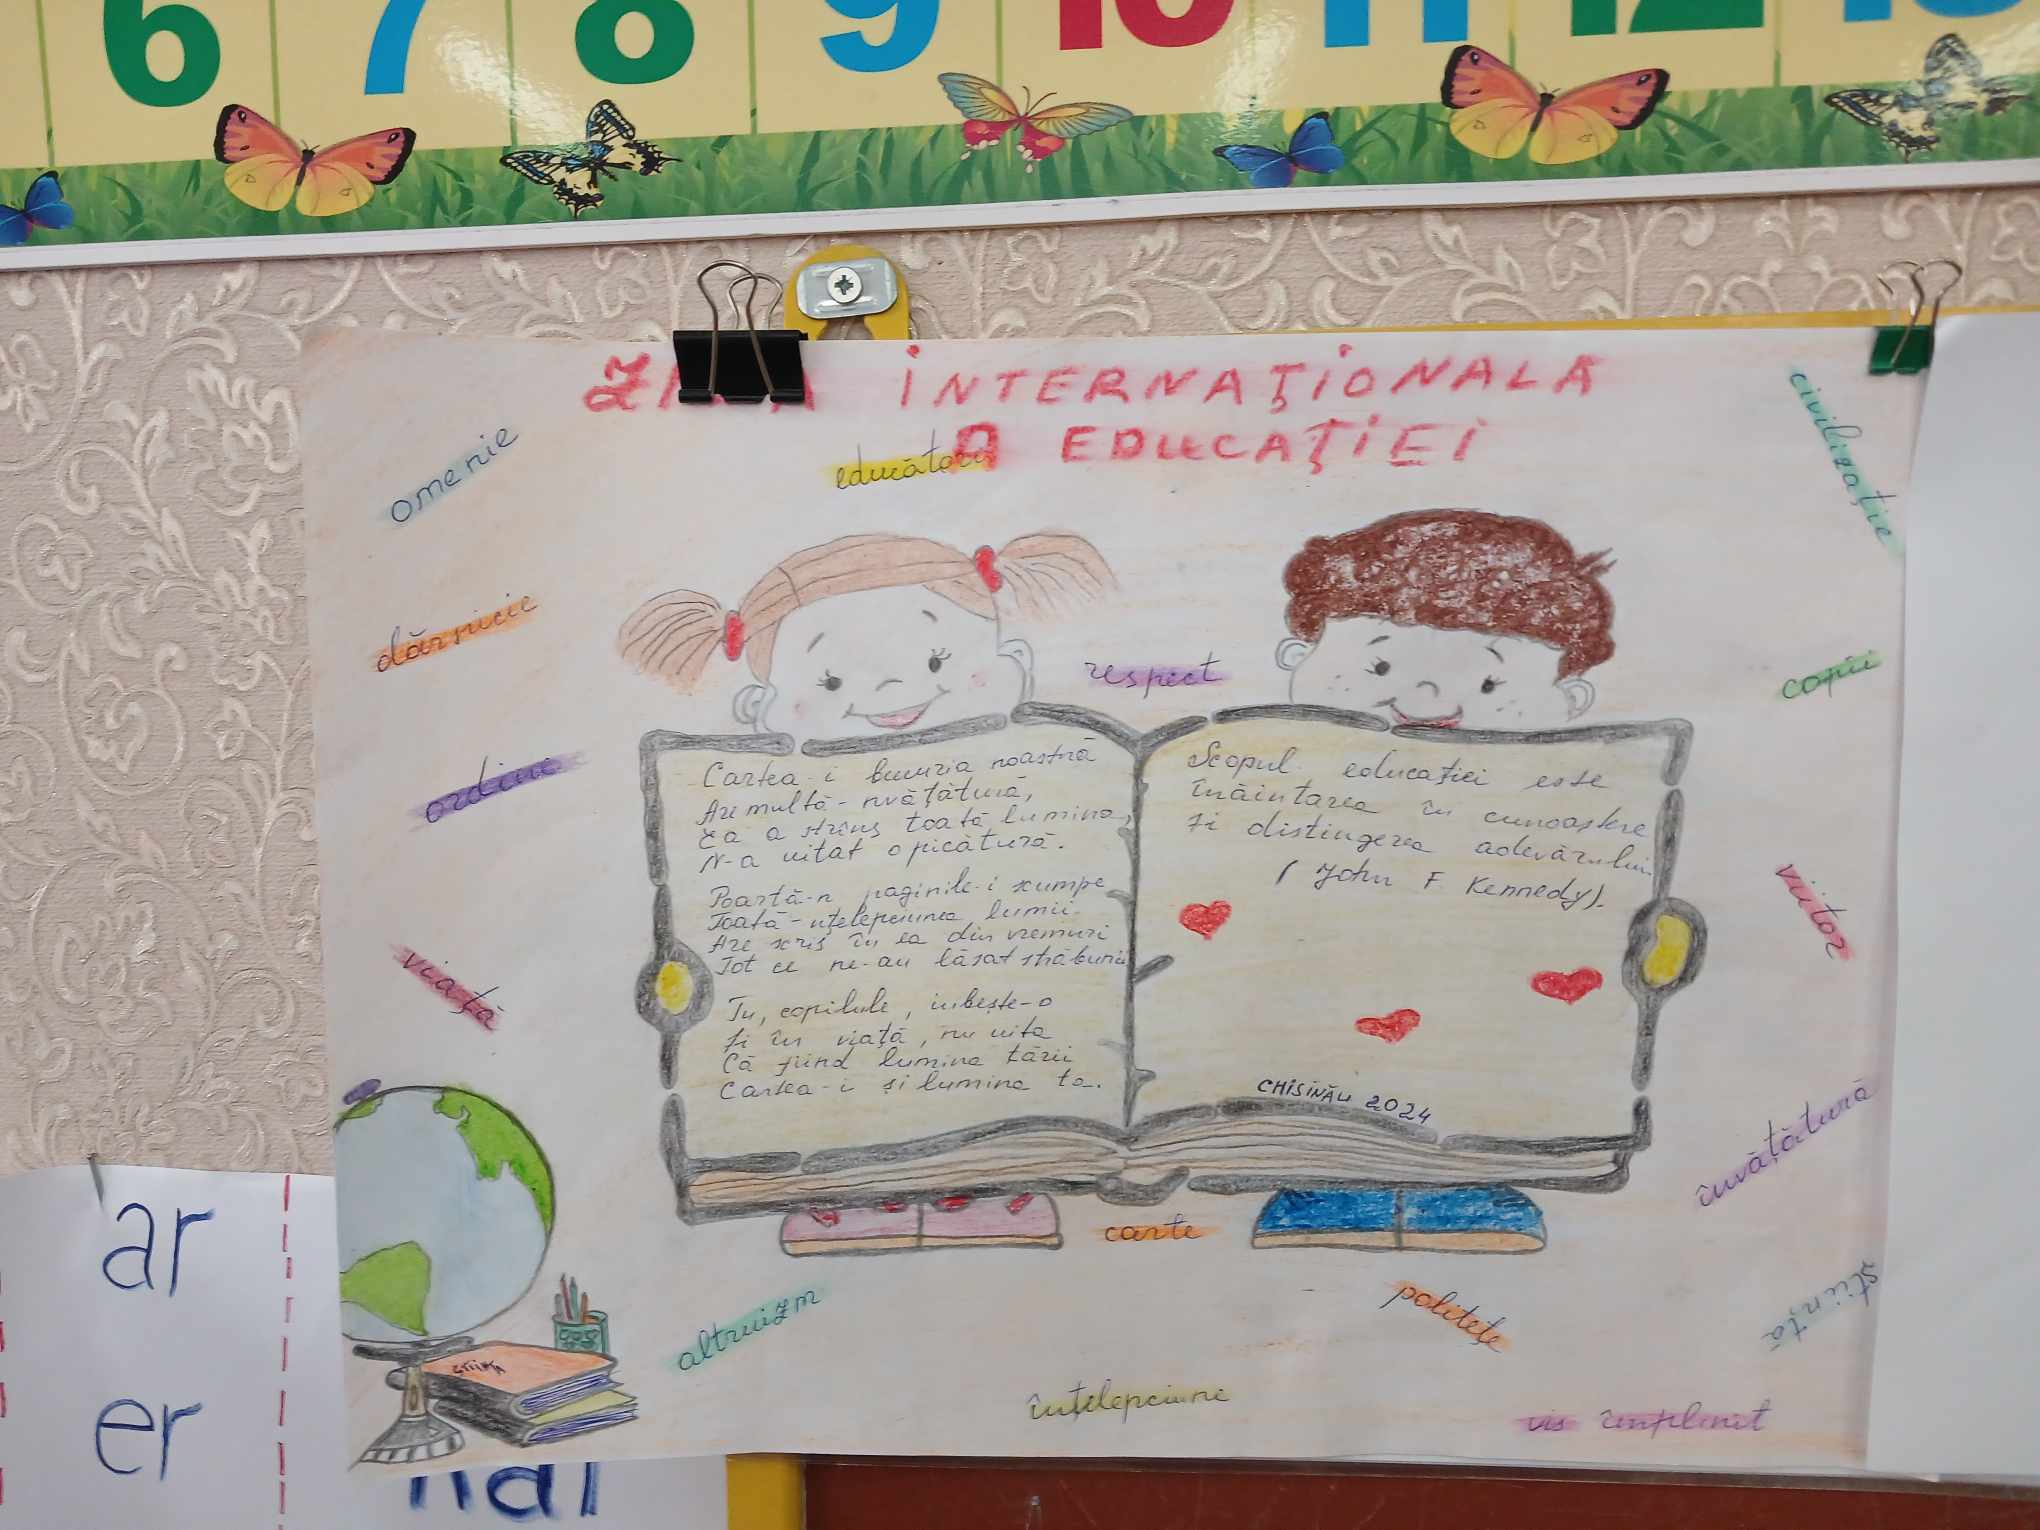 6 7 8 9 10 11 12 13
INTERNAȚIONALĂ
A EDUCAȚIEI
omenie
civilizație
dărnicie
respect
copii
ordine
Cartea-i bucuria noastră
Are multă-nvățătură,
Ea a strîns toată lumina,
N-a uitat o picătură.
Poartă-n paginile-i scumpe
Toată-nțelepciunea lumii
Are scris în ea din vremuri
Tot ce ne-au lăsat străbunii
Tu, copilule, iubește-o
Și în viață, nu uita
Că fiind lumina țării
Cartea-i și lumina ta.
Scopul educației este
înaintarea în cunoaștere
și distingerea adevărului
(John F. Kennedy).
CHIȘINĂU 2024
viitor
viață
învățătură
carte
altruizm
politețe
știință
înțelepciune
vis împlinit
ar
er